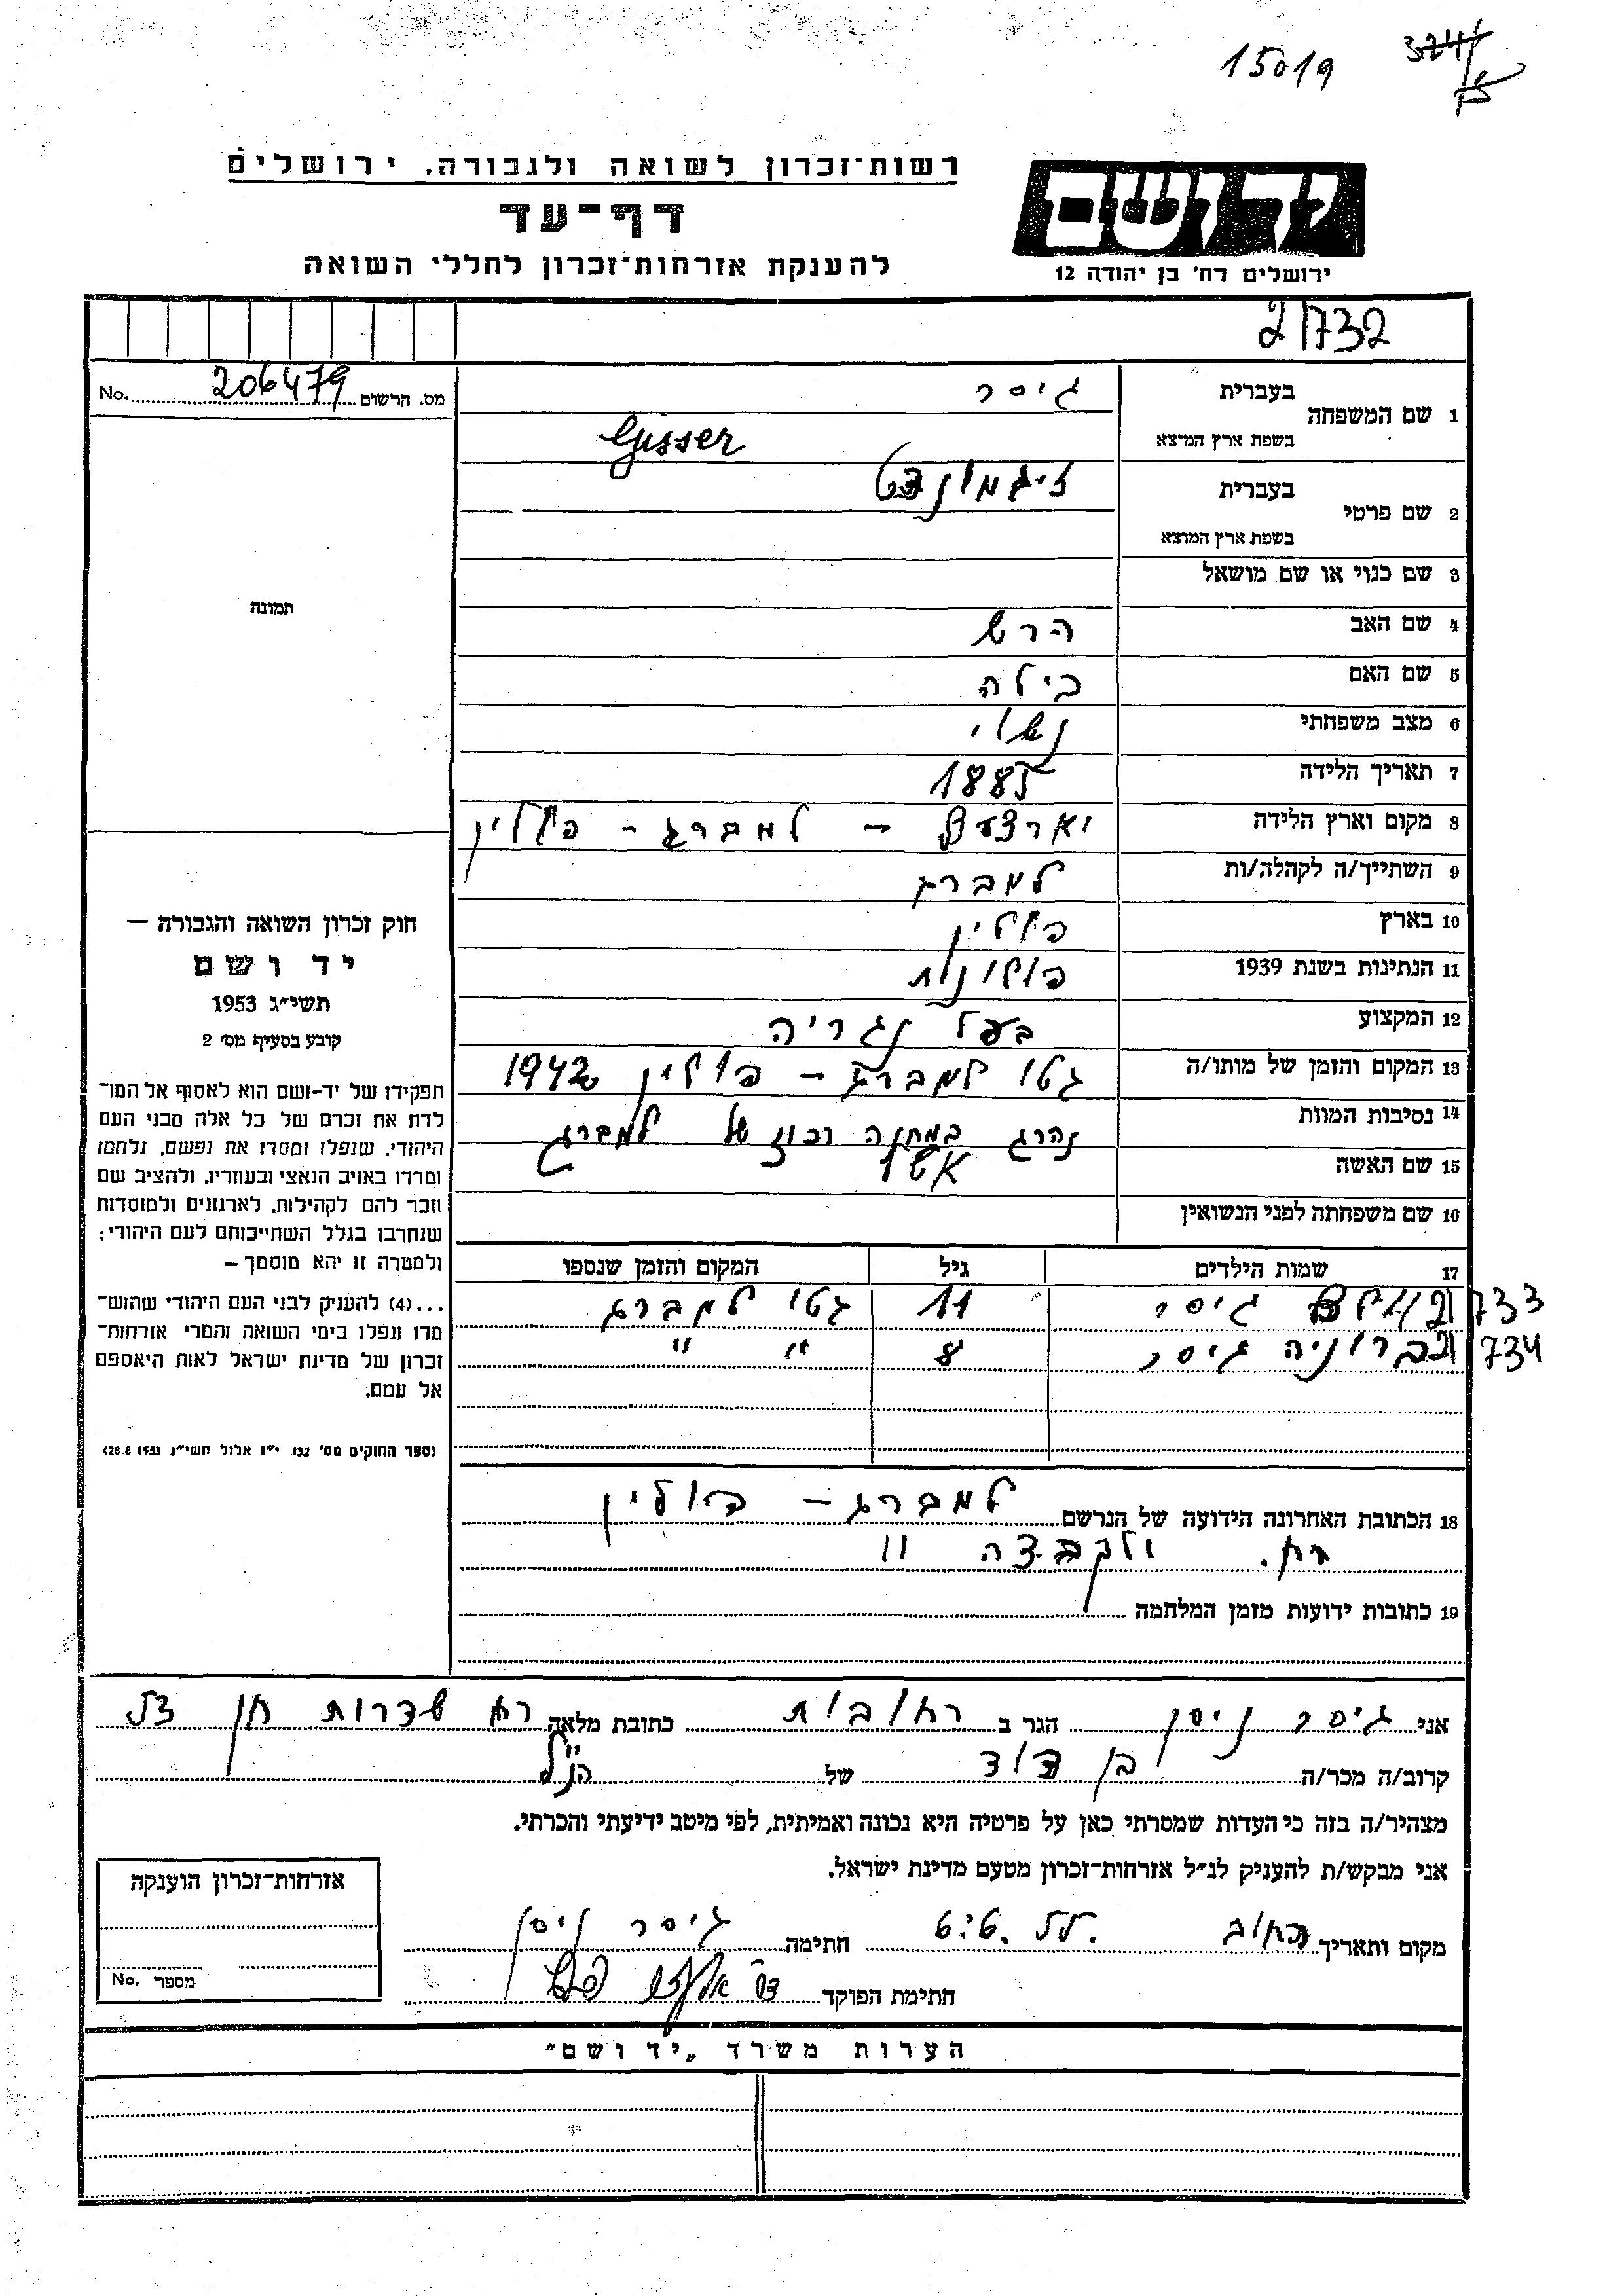 15019
רשות־זכרון לשואה ולגבורה. ירושלים
דף־עד
להענקת אזרחות־זכרון לחללי השואה
ירושלים רח׳ בן יהודה 12
2/732
No. 206479 מס. הרשום
1 שם המשפחה בעברית גיסר
בשפת ארץ המוצא Gisser
2 שם פרטי בעברית זיגמונד
בשפת ארץ המוצא
3 שם כנוי או שם מושאל
4 שם האב הרש
5 שם האם בילה
6 מצב משפחתי נשוי
7 תאריך הלידה 1885
8 מקום וארץ הלידה - למברג - פולין
9 השתייך/ה לקהלה/ות למברג
10 בארץ פולין
11 הנתינות בשנת 1939 פולונית
12 המקצוע בעל נגריה
13 המקום והזמן של מותו/ה גטו למברג - פולין 1942
14 נסיבות המוות נהרג במחנה רכוז של למברג
15 שם האשה
16 שם משפחתה לפני הנשואין
17 שמות הילדים גיל המקום והזמן שנספו
גיסר 11 גטו למברג 733
ברוניה גיסר 8 " " 734
18 הכתובת האחרונה הידועה של הנרשם למברג - פולין
רח. 11
19 כתובות ידועות מזמן המלחמה
תמונה
חוק זכרון השואה והגבורה —
יד ושם
תשי״ג 1953
קובע בסעיף מס׳ 2
תפקידו של יד-ושם הוא לאסוף אל המו־
לדת את זכרם של כל אלה מבני העם
היהודי, שנפלו ומסרו את נפשם, נלחמו
ומרדו באויב הנאצי ובעוזריו, ולהציב שם
וזכר להם לקהילות, לארגונים ולמוסדות
שנחרבו בגלל השתייכותם לעם היהודי;
ולמטרה זו יהא מוסמך —
...(4) להעניק לבני העם היהודי שהוש־
מדו ונפלו בימי השואה והמרי אזרחות־
זכרון של מדינת ישראל לאות היאספם
אל עמם.
(ספר החוקים מס׳ 132 י״ז אלול תשי״ג 28.8.1953)
אני גיסר ניסן הגר ב רחובות כתובת מלאה שדרות חן
קרוב/ה מכר/ה בן דוד של הנ״ל
מצהיר/ה בזה כי העדות שמסרתי כאן על פרטיה היא נכונה ואמיתית, לפי מיטב ידיעתי והכרתי.
אני מבקש/ת להעניק לנ״ל אזרחות־זכרון מטעם מדינת ישראל.
מקום ותאריך חתימה גיסר ניסן
חתימת הפוקד
אזרחות־זכרון הוענקה
No. מספר
הערות משרד „יד ושם״